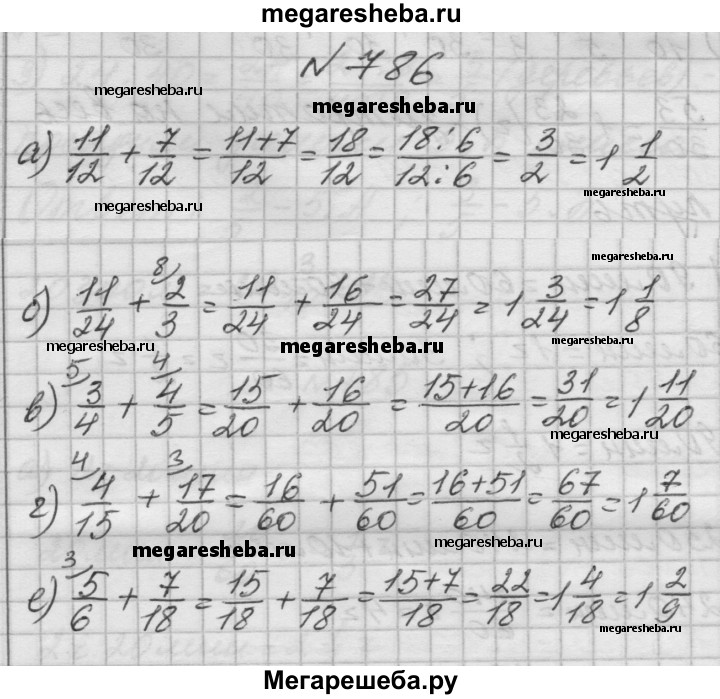 megaresheba.ru
№ 786
megaresheba.ru
megaresheba.ru
а) 11/12 + 7/12 = 11+7/12 = 18/12 = 18:6/12:6 = 3/2 = 1 1/2
megaresheba.ru
megaresheba.ru
megaresheba.ru
б) 11/24 + 2/3 ⁸⁾ = 11/24 + 16/24 = 27/24 = 1 3/24 = 1 1/8
megaresheba.ru
megaresheba.ru
в) 3/4 ⁵⁾ + 4/5 ⁴⁾ = 15/20 + 16/20 = 15+16/20 = 31/20 = 1 11/20
megaresheba.ru
г) 4/15 ⁴⁾ + 17/20 ³⁾ = 16/60 + 51/60 = 16+51/60 = 67/60 = 1 7/60
megaresheba.ru
megaresheba.ru
е) 5/6 ³⁾ + 7/18 = 15/18 + 7/18 = 15+7/18 = 22/18 = 1 4/18 = 1 2/9
megaresheba.ru
Мегарешеба.ру